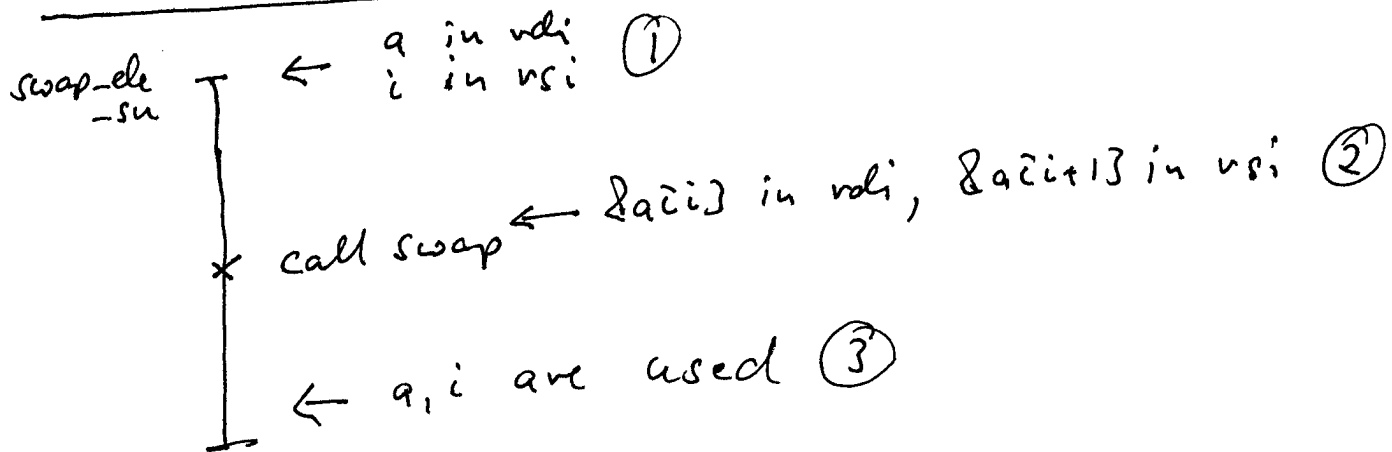 swap_ele
_su
← a in rdi ①
i in rsi
call swap ← &a[i] in rdi, &a[i+1] in rsi ②
← a, i are used ③